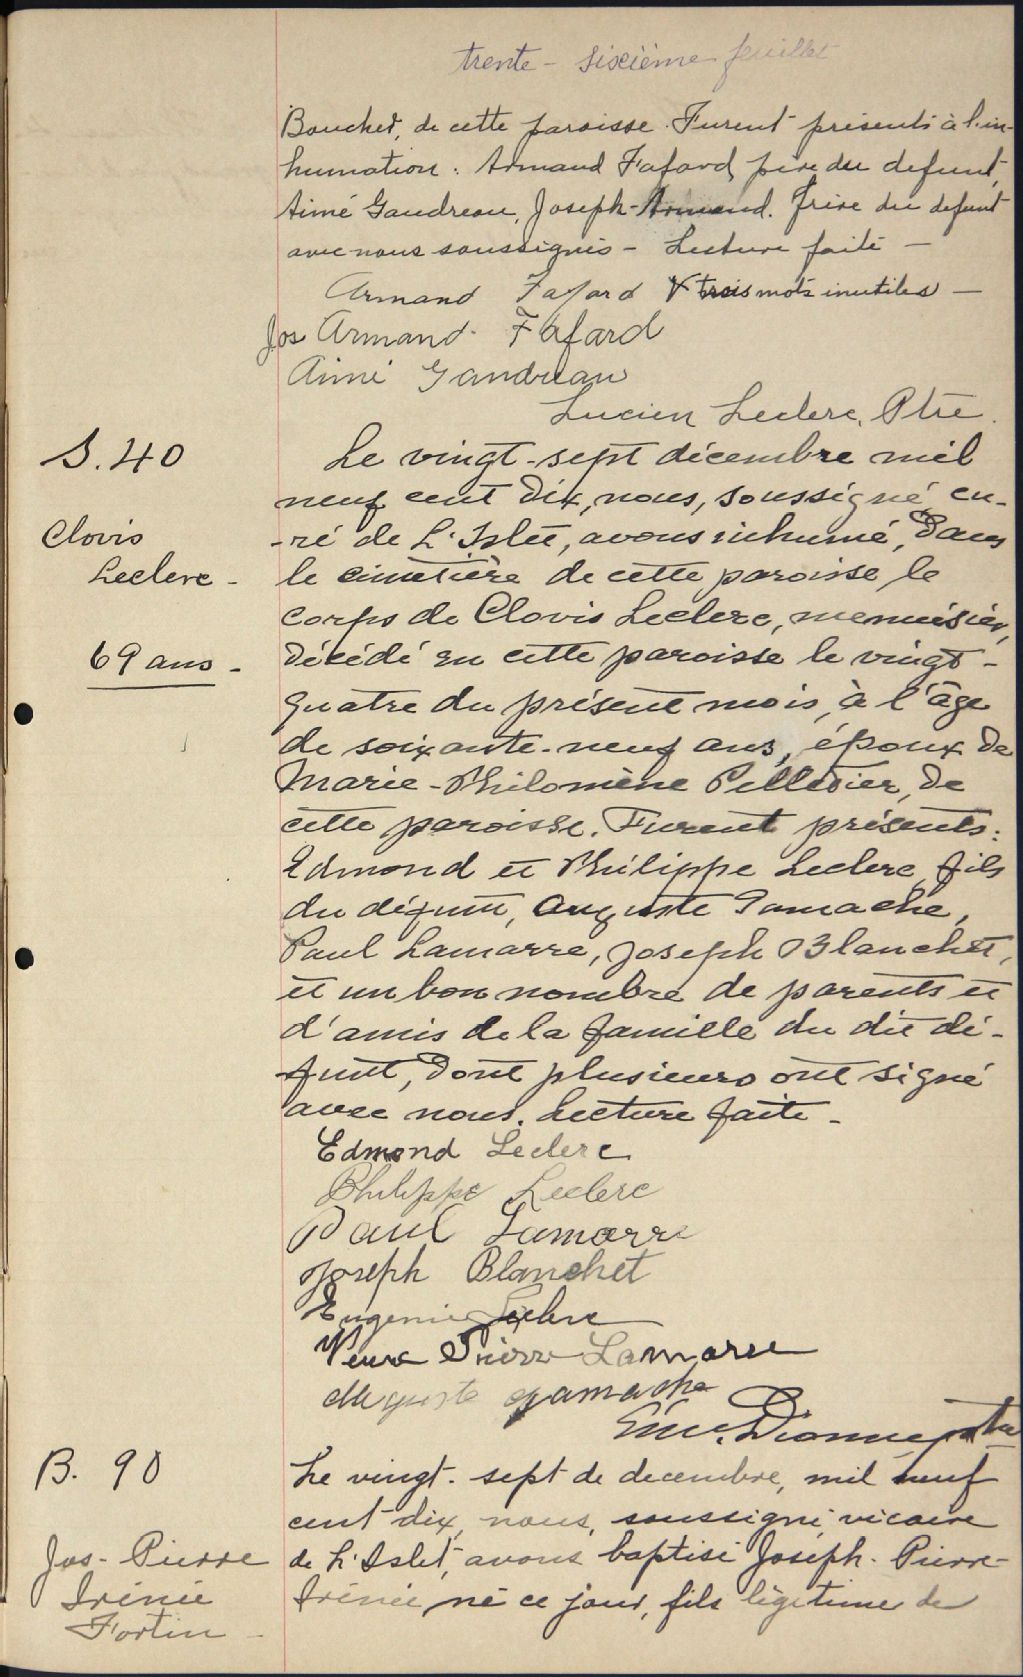 trente - sixième feuillet
Boucher, de cette paroisse. Furent présents à l'in-
humation: Armand Fafard, père du defunt,
Aimé Gaudreau, Joseph-Armand. frère du defunt
avec nous soussignés - Lecture faite -
Armand Fafard X trois mots inutiles -
Jos Armand Fafard
Aimé Gaudreau
Lucien Leclerc, Ptre.
S. 40
Clovis
Leclerc -
69 ans -
Le vingt-sept décembre mil
neuf cent dix, nous, soussigné, cu-
-ré de L'Islet, avons inhumé, dans
le cimetière de cette paroisse le
corps de Clovis Leclerc, menuisier,
décédé en cette paroisse le vingt-
quatre du présent mois, à l'âge
de soixante-neuf ans, époux de
Marie-Philomène Pelletier, de
cette paroisse. Furent présents:
Edmond et Philippe Leclerc, fils
du défunt, Auguste Gamache,
Paul Lamarre, Joseph Blanchet,
et un bon nombre de parents et
d'amis de la famille du dit dé-
-funt, dont plusieurs ont signé
avec nous. Lecture faite -
Edmond Leclerc
Philippe Leclerc
Paul Lamarre
Joseph Blanchet
Eugenie Leclerc
Veuve Pierre Lamarre
Auguste gamache
Dionne, ptre
B. 90
Jos- Pierre
Irénée
Fortin -
Le vingt-sept de decembre, mil neuf
cent-dix, nous, soussigné, vicaire
de L'Islet, avons baptisé Joseph-Pierre-
Irénée, né ce jour, fils légitime de